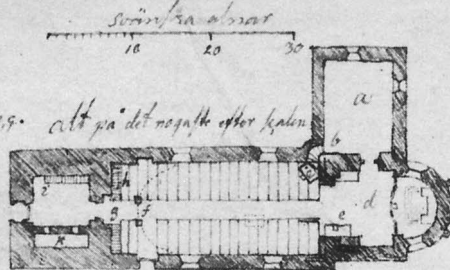 svänska alnar
10 20 30
alt på det nogaste efter skalan
a
b
h
d
g f e
k